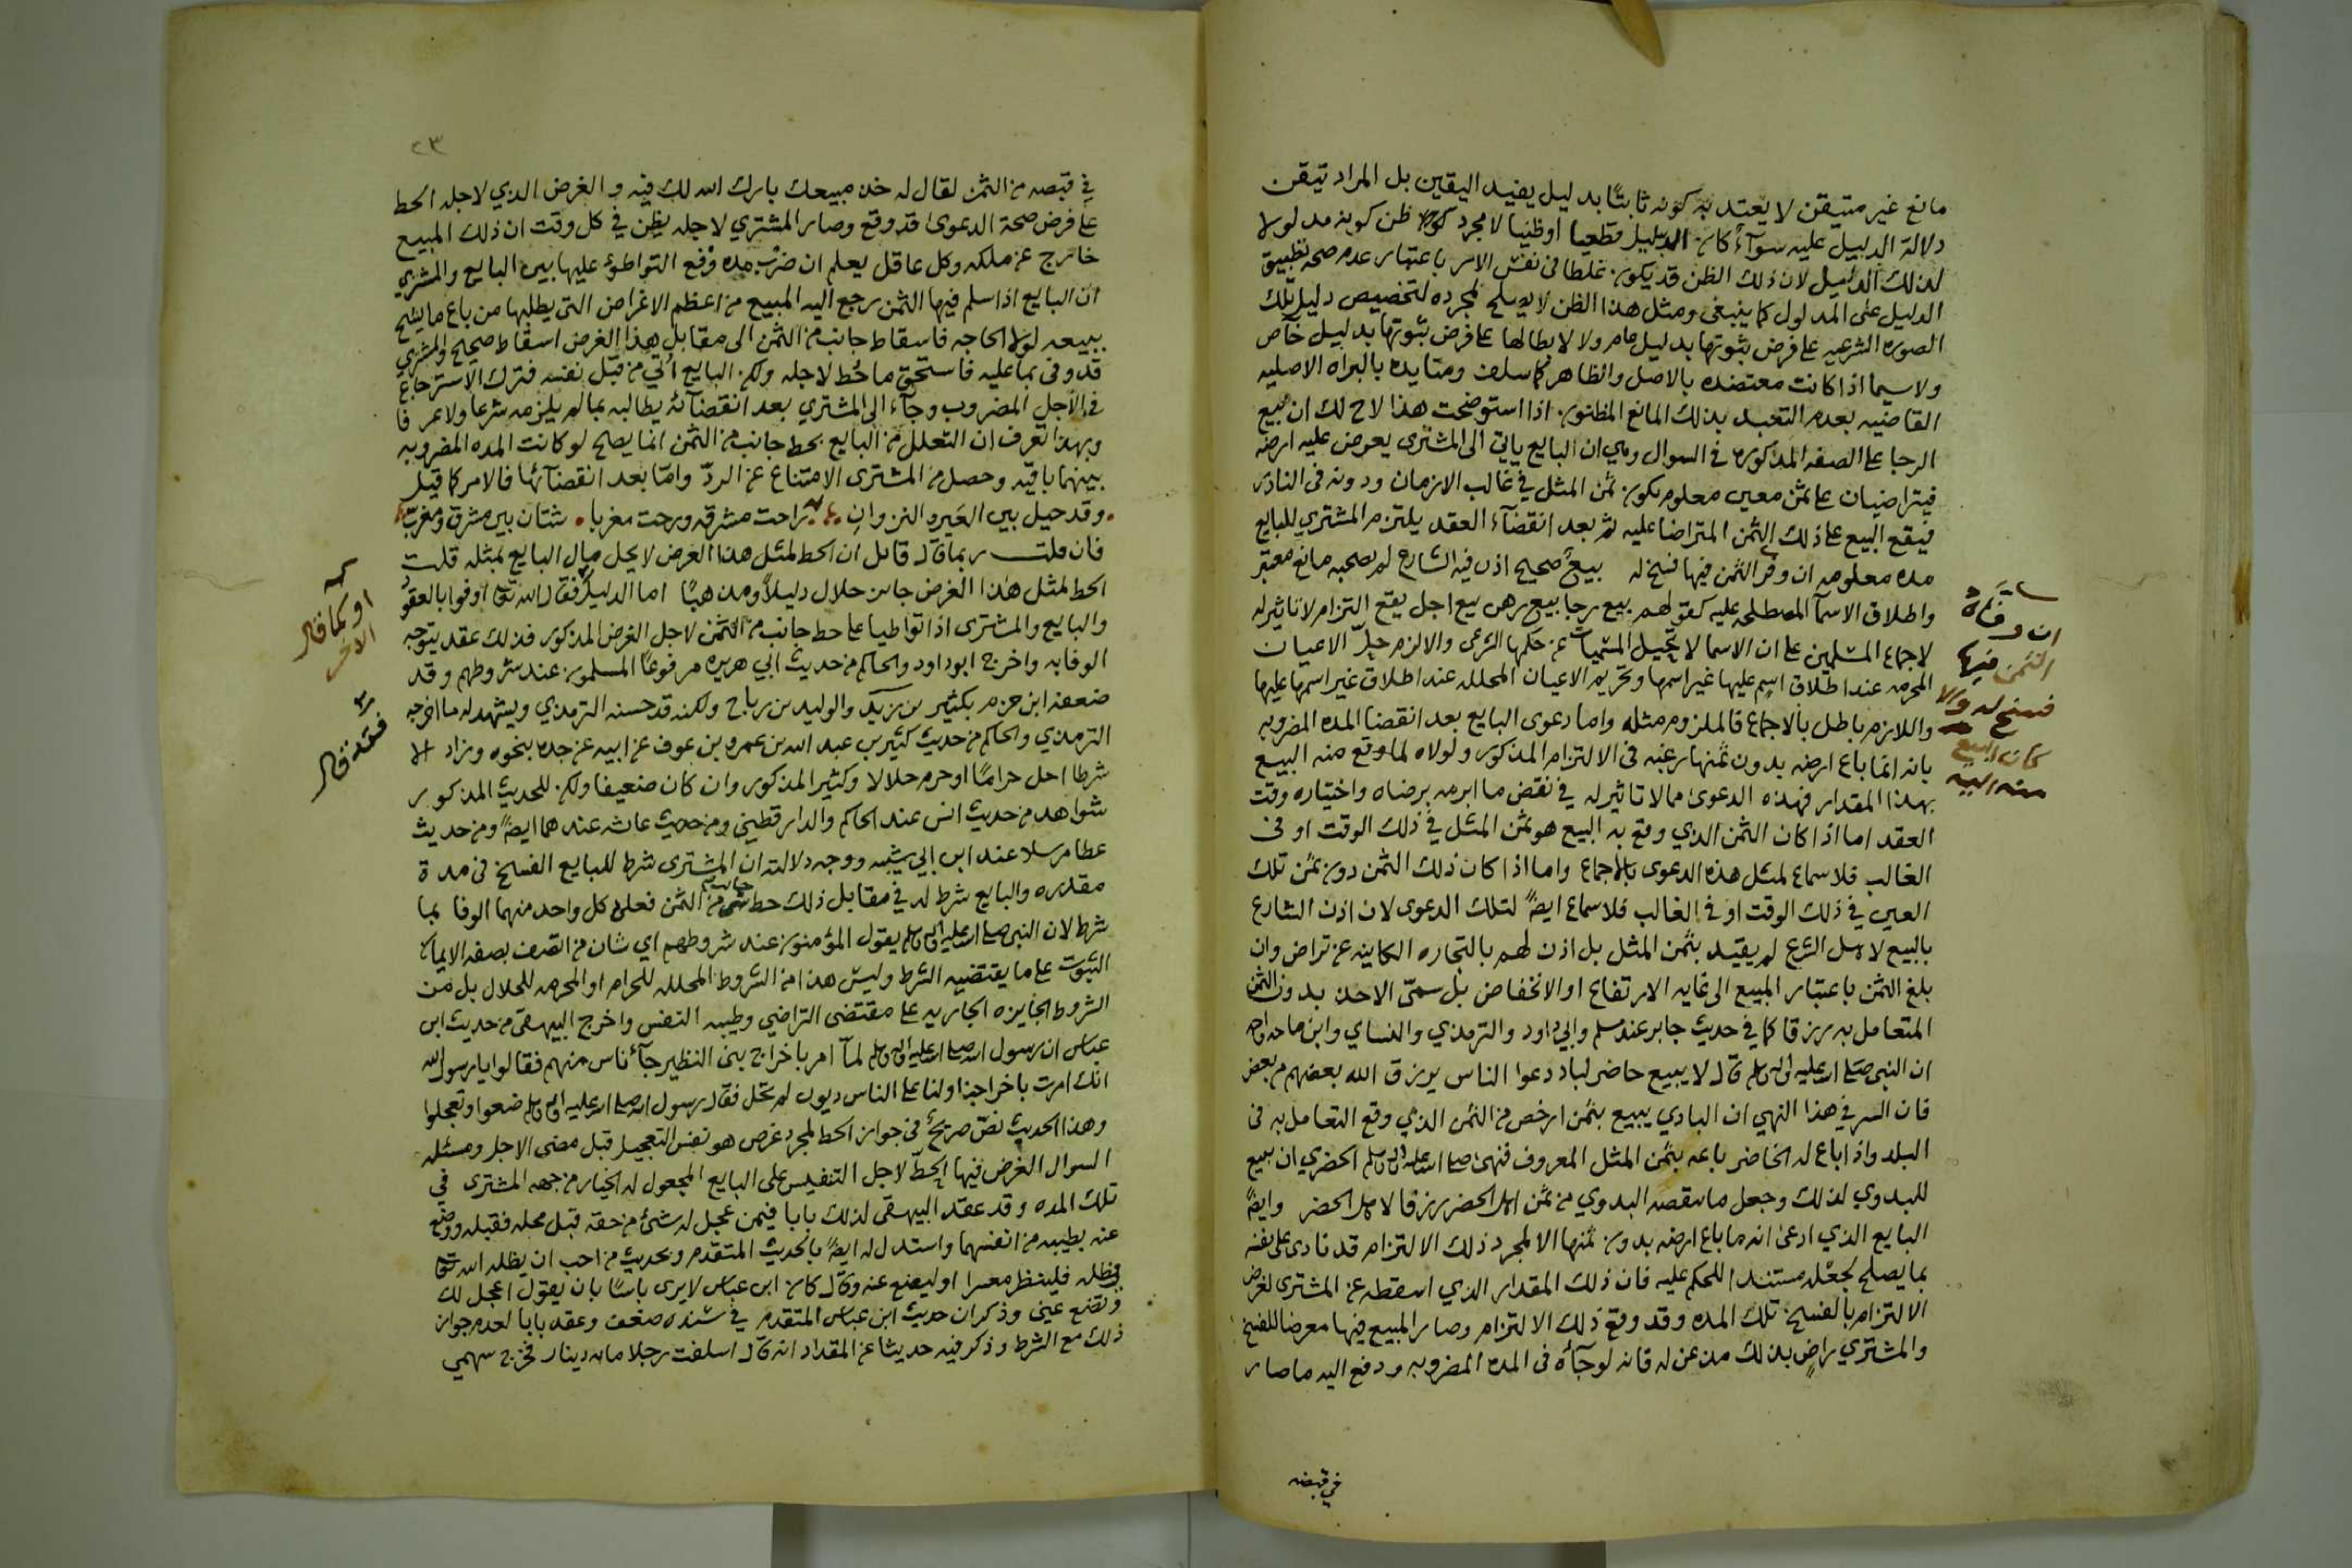 مانع غير متيقن لا يعتد به كونه ثابتًا بدليل يفيد اليقين بل المراد تيقن
دلالة الدليل عليه سوآءً كان الدليل قطعيا او ظنيا لا مجرد ظن كونه مدلولا
لذلك الدليل لان ذلك الظن قد يكون غلطا في نفس الامر باعتبار عدم صحه تطبيق
الدليل على المدلول كما ينبغي ومثل هذا الظن لا يصلح لمجرده لتخصيص دليل تلك
الصوره الشرعيه على فرض ثبوتها بدليل عام ولا لابطالها على فرض ثبوتها بدليل خاص
ولا سيما اذا كانت معتضده بالاصل والظاهر كما سلف ومتايده بالبراه الاصليه
القاضيه بعدم التعبد بذلك المانع المظنون اذا استوضحت هذا لاح لك ان بيع
الرجا على الصفه المذكوره في السوال وهي ان البايع ياتي الى المشتري يعرض عليه ارضه
فيتراضيان على ثمن معين معلوم يكون ثمن المثل في غالب الازمان ودونه في النادر
فيقع البيع على ذلك الثمن المتراضا عليه ثم بعد انقضآء العقد يلتزم المشتري للبايع
مده معلومه ان وفر الثمن فيها فسخ له بيعٌ صحيح اذن فيه الشارع لم يصحبه مانع معتبر
واطلاق الاسمآ المصطلحه عليه كقولهم بيع رجا بيع رهن بيع اجل يقع التزام لا تاثير له
لاجماع المسلمين على ان الاسما لا تحيل المسميات عن حكمها الشرعي والا لزم حل الاعيان
المحرمه عند اطلاق اسم عليها غير اسمها وتحريم الاعيان المحلله عند اطلاق غير اسمها عليها
واللازم باطل بالاجماع فالملزوم مثله واما دعوى البايع بعد انقضا المده المضروبه
بانه انما باع ارضه بدون ثمنها رغبه في الالتزام المذكور ولولاه لما وقع منه البيع
بهذا المقدار فهذه الدعوى مما لا تاثير له في نقض ما ابرمه برضاه واختياره وقت
العقد اما اذا كان الثمن الذي وقع به البيع هو ثمن المثل في ذلك الوقت او في
الغالب فلا سماع لمثل هذه الدعوى بالاجماع واما اذا كان ذلك الثمن دون ثمن تلك
العين في ذلك الوقت او في الغالب فلا سماع ايضًا لتلك الدعوى لان اذن الشارع
بالبيع لاهل الشرع لم يقيد بثمن المثل بل اذن لهم بالتجاره الكاينه عن تراض وان
بلغ الثمن باعتبار المبيع الى غايه الارتفاع او الانخفاض بل سمى الاخذ بدون الثمن
المتعامل به رزقا كما في حديث جابر عند مسلم وابي داود والترمذي والنساي وابن ماجه
ان النبي صلى الله عليه واله وسلم قال لا يبيع حاضر لباد دعوا الناس يرزق الله بعضهم من بعض
فان السر في هذا النهي ان البادي يبيع بثمن ارخص من الثمن الذي وقع التعامل به في
البلد واذا باع له الحاضر باعه بثمن المثل المعروف فنهى صلى الله عليه واله وسلم الحضري ان يبيع
للبدوي لذلك وجعل ما ينقصه البدوي من ثمن اهل الحضر رزقا لاهل الحضر وايضًا
البايع الذي ادعى انه ما باع ارضه بدون ثمنها الا لمجرد ذلك الالتزام قد نادى على نفسه
بما يصلح لجعله مستندا للحكم عليه فان ذلك المقدار الذي اسقطه عن المشتري لغرض
الالتزام بالفسخ تلك المده وقد وقع ذلك الالتزام وصار المبيع فيها معرضا للفسخ
والمشتري راضٍ بذلك مذعن له فانه لو جآءه في المده المضروبه ودفع اليه ما صار
في قبضه
ان وفاه
الثمن فيها
فسخ له والا
كان البيع
٢٣
في قبضه من الثمن لقال له خذ مبيعك بارك الله لك فيه والغرض الذي لاجله الحط
على فرض صحة الدعوى قد وقع وصار المشتري لاجله يظن في كل وقت ان ذلك المبيع
خارج عن ملكه وكل عاقل يعلم ان ضرب مده وقع التواطؤ عليها بين البايع والمشتري
ان البايع اذا سلم فيها الثمن رجع اليه المبيع من اعظم الاغراض التي يطلبها من باع ما يشح
ببيعه لولا الحاجه فاسقاط جانب من الثمن الى مقابل هذا الغرض اسقاط صحيح والمشتري
قد وفى بما عليه فاستحق ما حُط لاجله ولكن البايع اُتي من قبل نفسه فترك الاسترجاع
في الاجل المضروب وجآء الى المشتري بعد انقضآئه يطالبه بما لم يلزمه شرعا ولا عرفا
وبهذا تعرف ان التعلل من البايع بحط جانب من الثمن انما يصلح لو كانت المده المضروبه
بينهما باقيه وحصل من المشتري الامتناع عن الردّ وامّا بعد انقضآئها فالامر كما قيل
وقد حيل بين العَير والنزوان راحت مشرقه ورحت مغربا شتان بين مشرق ومغرب
فان قلت ربما قال قائل ان الحط لمثل هذا الغرض لا يحل مال البايع بمثله قلت
الحط لمثل هذا الغرض جائز حلال دليلاً ومذهبًا اما الدليل فقال الله تعالى اوفوا بالعقود
والبايع والمشتري اذا تواطيا على حط جانب من الثمن لاجل الغرض المذكور فذلك عقد يتوجه
الوفا به واخرج ابو داود والحاكم من حديث ابي هريره مرفوعًا المسلمون عند شروطهم وقد
ضعفه ابن حزم بكثير بن زيد والوليد بن رباح ولكنه قد حسنه الترمذي ويشهد له ما اخرجه
الترمذي والحاكم من حديث كثير بن عبد الله بن عمرو بن عوف عن ابيه عن جده بنحوه وزاد الا
شرطا احل حرامًا او حرم حلالا وكثير المذكور وان كان ضعيفا ولكن للحديث المذكور
شواهد من حديث انس عند الحاكم والدارقطني ومن حديث عائشه عندهما ايضًا ومن حديث
عطا مرسلا عند ابن ابي شيبه ووجه دلالته ان المشتري شرط للبايع الفسخ في مدة
مقدره والبايع شرط له في مقابل ذلك حط جانب من الثمن فعلى كل واحد منهما الوفا بما
شرط لان النبي صلى الله عليه واله وسلم يقول المؤمنون عند شروطهم اي شان من اتصف بصفه الايمان
الثبوت على ما يقتضيه الشرط وليس هذا من الشروط المحلله للحرام او المحرمه للحلال بل من
الشروط الجايزه الجاريه على مقتضى التراضي وطيبه النفس واخرج البيهقي من حديث ابن
عباس ان رسول الله صلى الله عليه واله وسلم لمآ امر باخراج بني النظير جآء ناس منهم فقالوا يا رسول الله
انك امرت باخراجنا ولنا على الناس ديون لم تحل فقال رسول الله صلى الله عليه واله وسلم ضعوا وتعجلوا
وهذا الحديث نصّ صريحٌ في جواز الحط لمجرد غرض هو نفس التعجيل قبل مضي الاجل ومسئله
السوال الغرض فيها الحطّ لاجل التنفيس على البايع المجعول له الخيار من جهه المشتري في
تلك المده وقد عقد البيهقي لذلك بابا فيمن عجل له شئ من حقه قبل محله فقبله ووضع
عنه بطيبه من انفسهما واستدل له ايضًا بالحديث المتقدم وبحديث من احب ان يظله الله تعالى
في ظله فلينظر معسرا او ليضع عنه وقال كان ابن عباس لا يرى باسًا بان يقول اعجل لك
وتضع عني وذكر ان حديث ابن عباس المتقدم في سنده ضعف وعقد بابا لعدم جواز
ذلك مع الشرط وذكر فيه حديثا عن المقداد انه قال اسلفت رجلا مايه دينار فخرج سهمي
او كما قال
الاخر
فقد قال